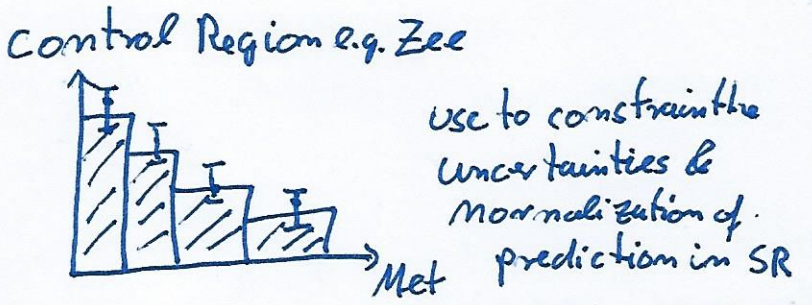 Control Region e.g. Zee
use to constrain the
uncertainties &
normalization of
prediction in SR
Met